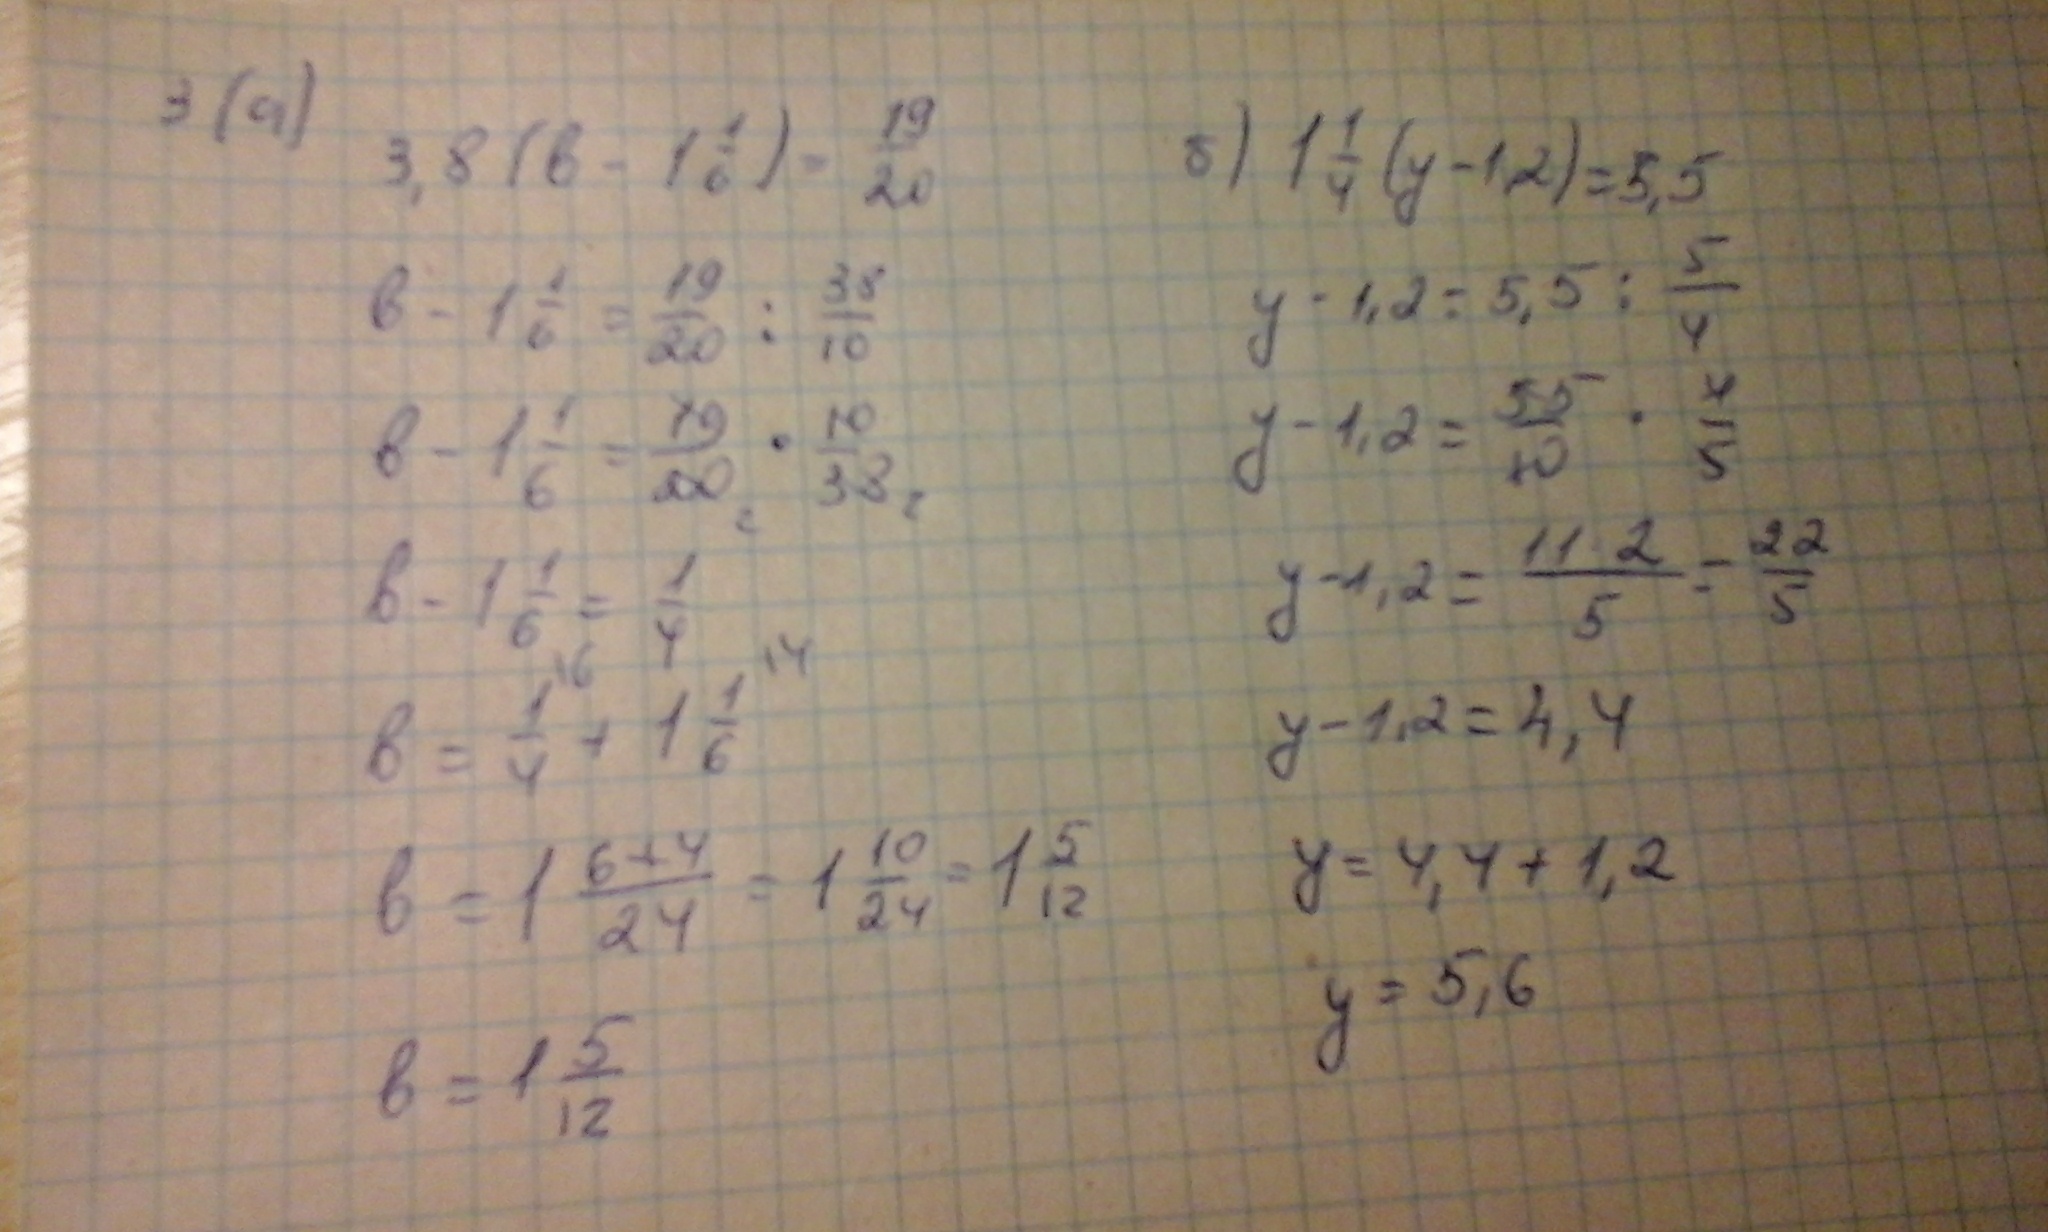 3(а) 3,8(в - 1 1/6) = 19/20
в - 1 1/6 = 19/20 : 38/10
в - 1 1/6 = 19/20 2 · 10/38 2
в - 1 1/6 = 1/4
в = 1/4 |6 + 1 1/6 |4
в = 1 (6+4)/24 = 1 10/24 = 1 5/12
в = 1 5/12
б) 1 1/4 (y - 1,2) = 5,5
y - 1,2 = 5,5 : 5/4
y - 1,2 = 55/10 · 4/5
y - 1,2 = (11·2)/5 = 22/5
y - 1,2 = 4,4
y = 4,4 + 1,2
y = 5,6